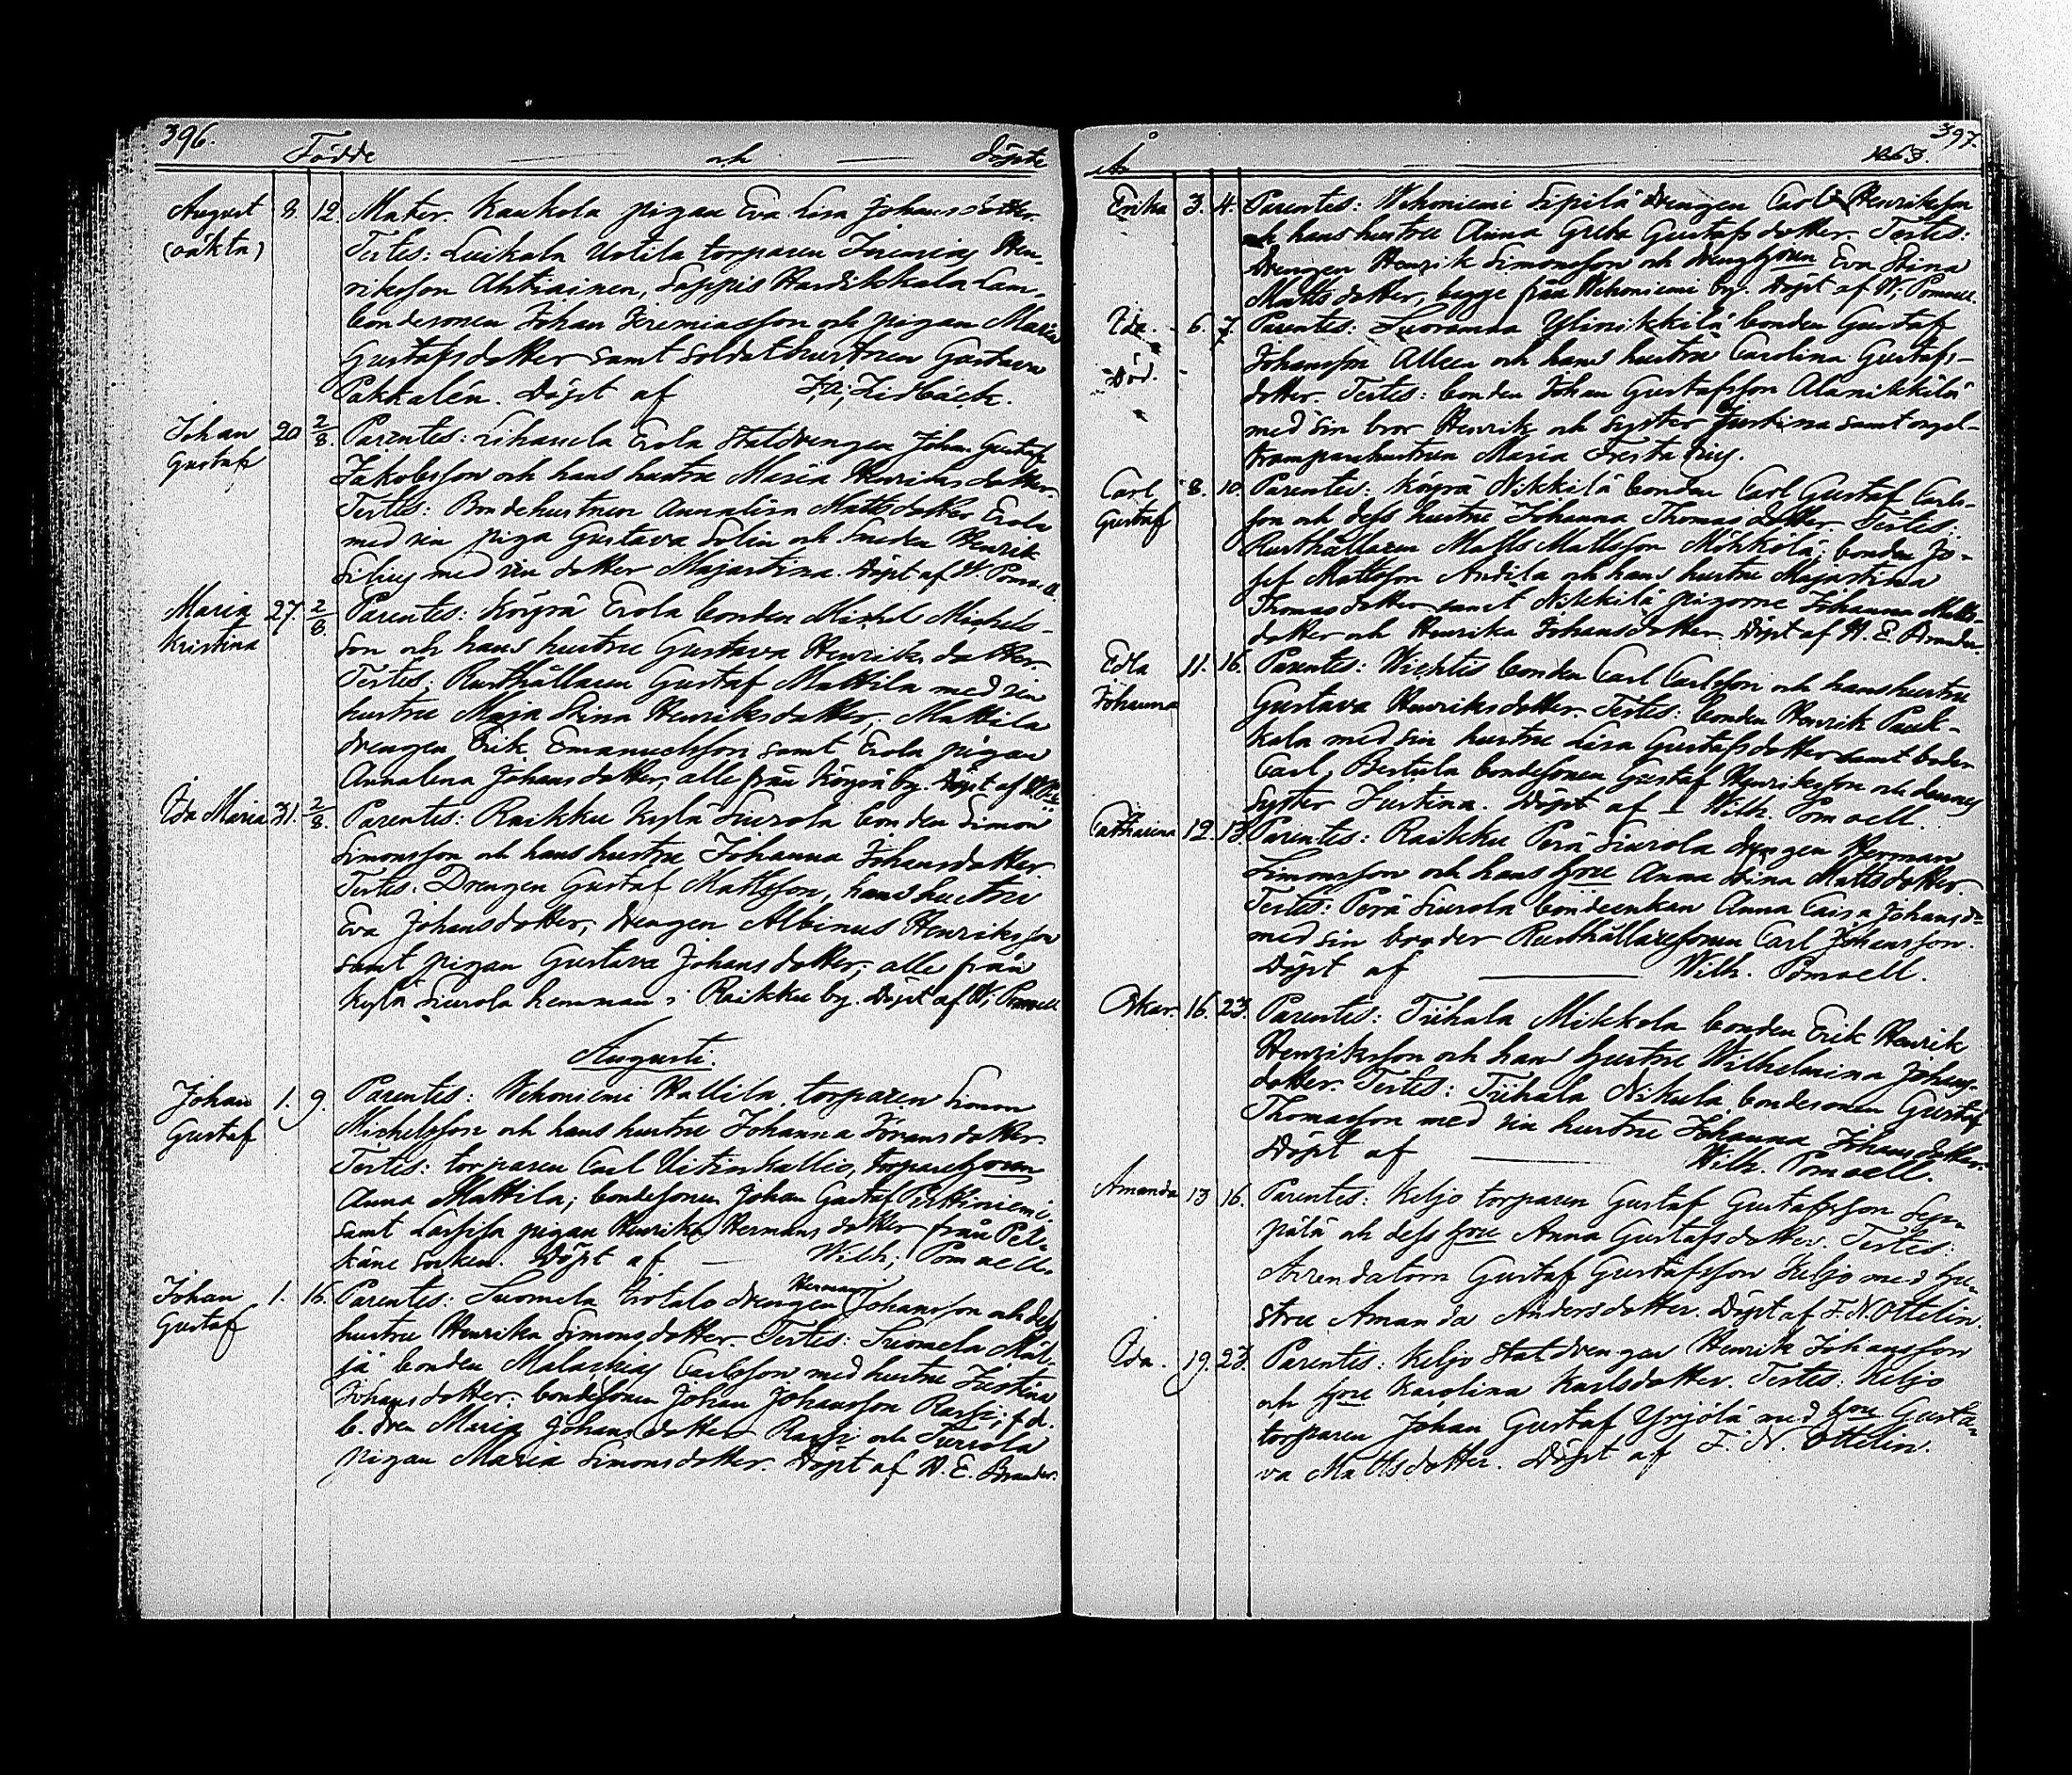 396.
Födde och döpte
August 8. 12 Mater. Kaukola pigan Eva Lisa Johansdotter.
(oäkta) Testes: Luikala Uotila torparen Jeremias Hen-
riksson Ahtiainen, Sappis Hardikkala Lam-
bondesonen Johan Jeremiasson och pigan Maria
Gustafsdotter samt soldathustrun Gustava
Pakkalén. Döpt af Fr; Zidbäck.
Johan 20 2/8. Parentes: Lihasula Erola Statdrengen Johan Gustaf
Gustaf Jakobsson och hans hustru Maria Henriksdotter.
Testes: Bondehustrun Annalisa Mattsdotter Erola
med sin piga Gustava Solin och Smeden Henrik
Silius med sin dotter Majastina. Döpt af W. Pomoell.
Maria 27. 2/8. Parentes: Köyrä Erola bonden Michel Michels-
Kristina son och hans hustru Gustava Henriksdotter
Testes: Rusthållaren Gustaf Mattila med sin
hustru Maja Stina Henriksdotter; Mattila
drengen Erik Emanuelsson samt Erola pigan
Annalena Johansdotter, alle från Köyrä by. Döpt af W. Po.
Ida Maria 31. 2/8. Parentes: Raikku Kylä Siurola bonden Simon
Simonsson och hans hustru Johanna Johansdotter.
Testes: Drengen Gustaf Mattsson, hans hustru
Eva Johansdotter, drengen Albinus Henriksson
samt pigan Gustava Johansdotter; alle från
Kylä Siurola hemman i Raikku by. Döpt af W; Pomoell
Augusti.
Johan 1. 9. Parentes: Wehoniemi Hallila torparen Simon
Gustaf Michelsson och hans hustru Johanna Göransdotter.
Testes: torparen Carl Uitinkallio, torparehorun
Anna Mattila; bondesonen Johan Gustaf Perttiniemi
samt pigan Henrika Hermansdotter från Pel-
käne socken. Döpt af Wilh; Pomoell.
Johan 1. 16. Parentes: Suomela drengen Herman Johansson och dess
Gustaf hustru Henrika Simonsdotter. Testes: Suomela Mäl-
jä bonden Malachias Carlsson med hustru Justina
Johansdotter; bondesonen Johan Johansson Rassi; f.d.
b. dren Maria Johansdotter Rassi och Turiola
pigan Maria Simonsdotter. Döpt af H. E. Brander.
397.
År 1863.
Erika 3. 4. Parentes: Wehoniemi Sipilä drengen Carl Henriksson
och hans hustru Anna Greta Gustafsdotter. Testes:
Drengen Henrik Simonsson och Eva Stina
Mattsdotter, begge från Wehoniemi by. Döpt af W; Pomoell.
Ida. 6. 7. Parentes: Suorama Ylinikkilä bonden Gustaf
Död. Johansson Alleen och hans hustru Carolina Gustafs-
dotter. Testes: bonden Johan Gustafsson Alanikkilä
med sin bror Henrik och syster Justina samt orgel-
tramparehustrun Maria Frestadius.
Carl 8. 10. Parentes: Köyrä Nikkilä bonden Carl Gustaf Carls-
Gustaf son och dess hustru Johanna Thomasdotter. Testes:
Rusthållaren Matts Mattsson Möhkölä; bonden Jo-
sef Mattsson Andila och hans hustru Majastina
Thomasdotter samt Nikkilä pigorne Johanna Matts-
dotter och Henrika Johansdotter. Döpt af H. E. Brander.
Edla 11. 16. Parentes: Wichtis bonden Carl Carlsson och hans hustru
Johanna Gustava Henriksdotter. Testes: bonden Henrik Pauk-
kala med sin hustru Lisa Gustafsdotter samt
Carl, Bertula bondesonen Gustaf Henriksson och dennes
syster Justina. Döpt af Wilh. Pomoell.
Catharina 12. 13. Parentes: Raikku Perä Siurola drengen Herman
Simonsson och hans hou Anna Stina Mattsdotter.
Testes: Perä Siurola bondeenkan Anna Caisa Johansd=
med sin broder Rusthållaresonen Carl Johansson.
Döpt af Wilh. Pomoell.
Oskar. 16. 23. Parentes: Tiihala Mikkola bonden Erik Henrik
Henriksson och hans hustru Wilhelmina Johans-
dotter. Testes: Tiihala Nikula bondesonen Gustaf
Thomasson med sin hustru Johanna Johansdotter.
Döpt af Wilh. Pomoell.
Amanda 13 16. Parentes: Keljo torparen Gustaf Gustafsson Sep-
pälä och dess hou Anna Gustafsdotter. Testes:
Arrendatorn Gustaf Gustafsson Keljo med hu-
stru Amanda Andersdotter. Döpt af F. N. Ottelin.
Ida. 19. 23. Parentes: Keljo Statdrengen Henrik Johansson
och hou Karolina Karlsdotter. Testes: Keljo
torparen Johan Gustaf Yrjölä med hou Gusta-
va Mattsdotter. Döpt af F. N. Ottelin.